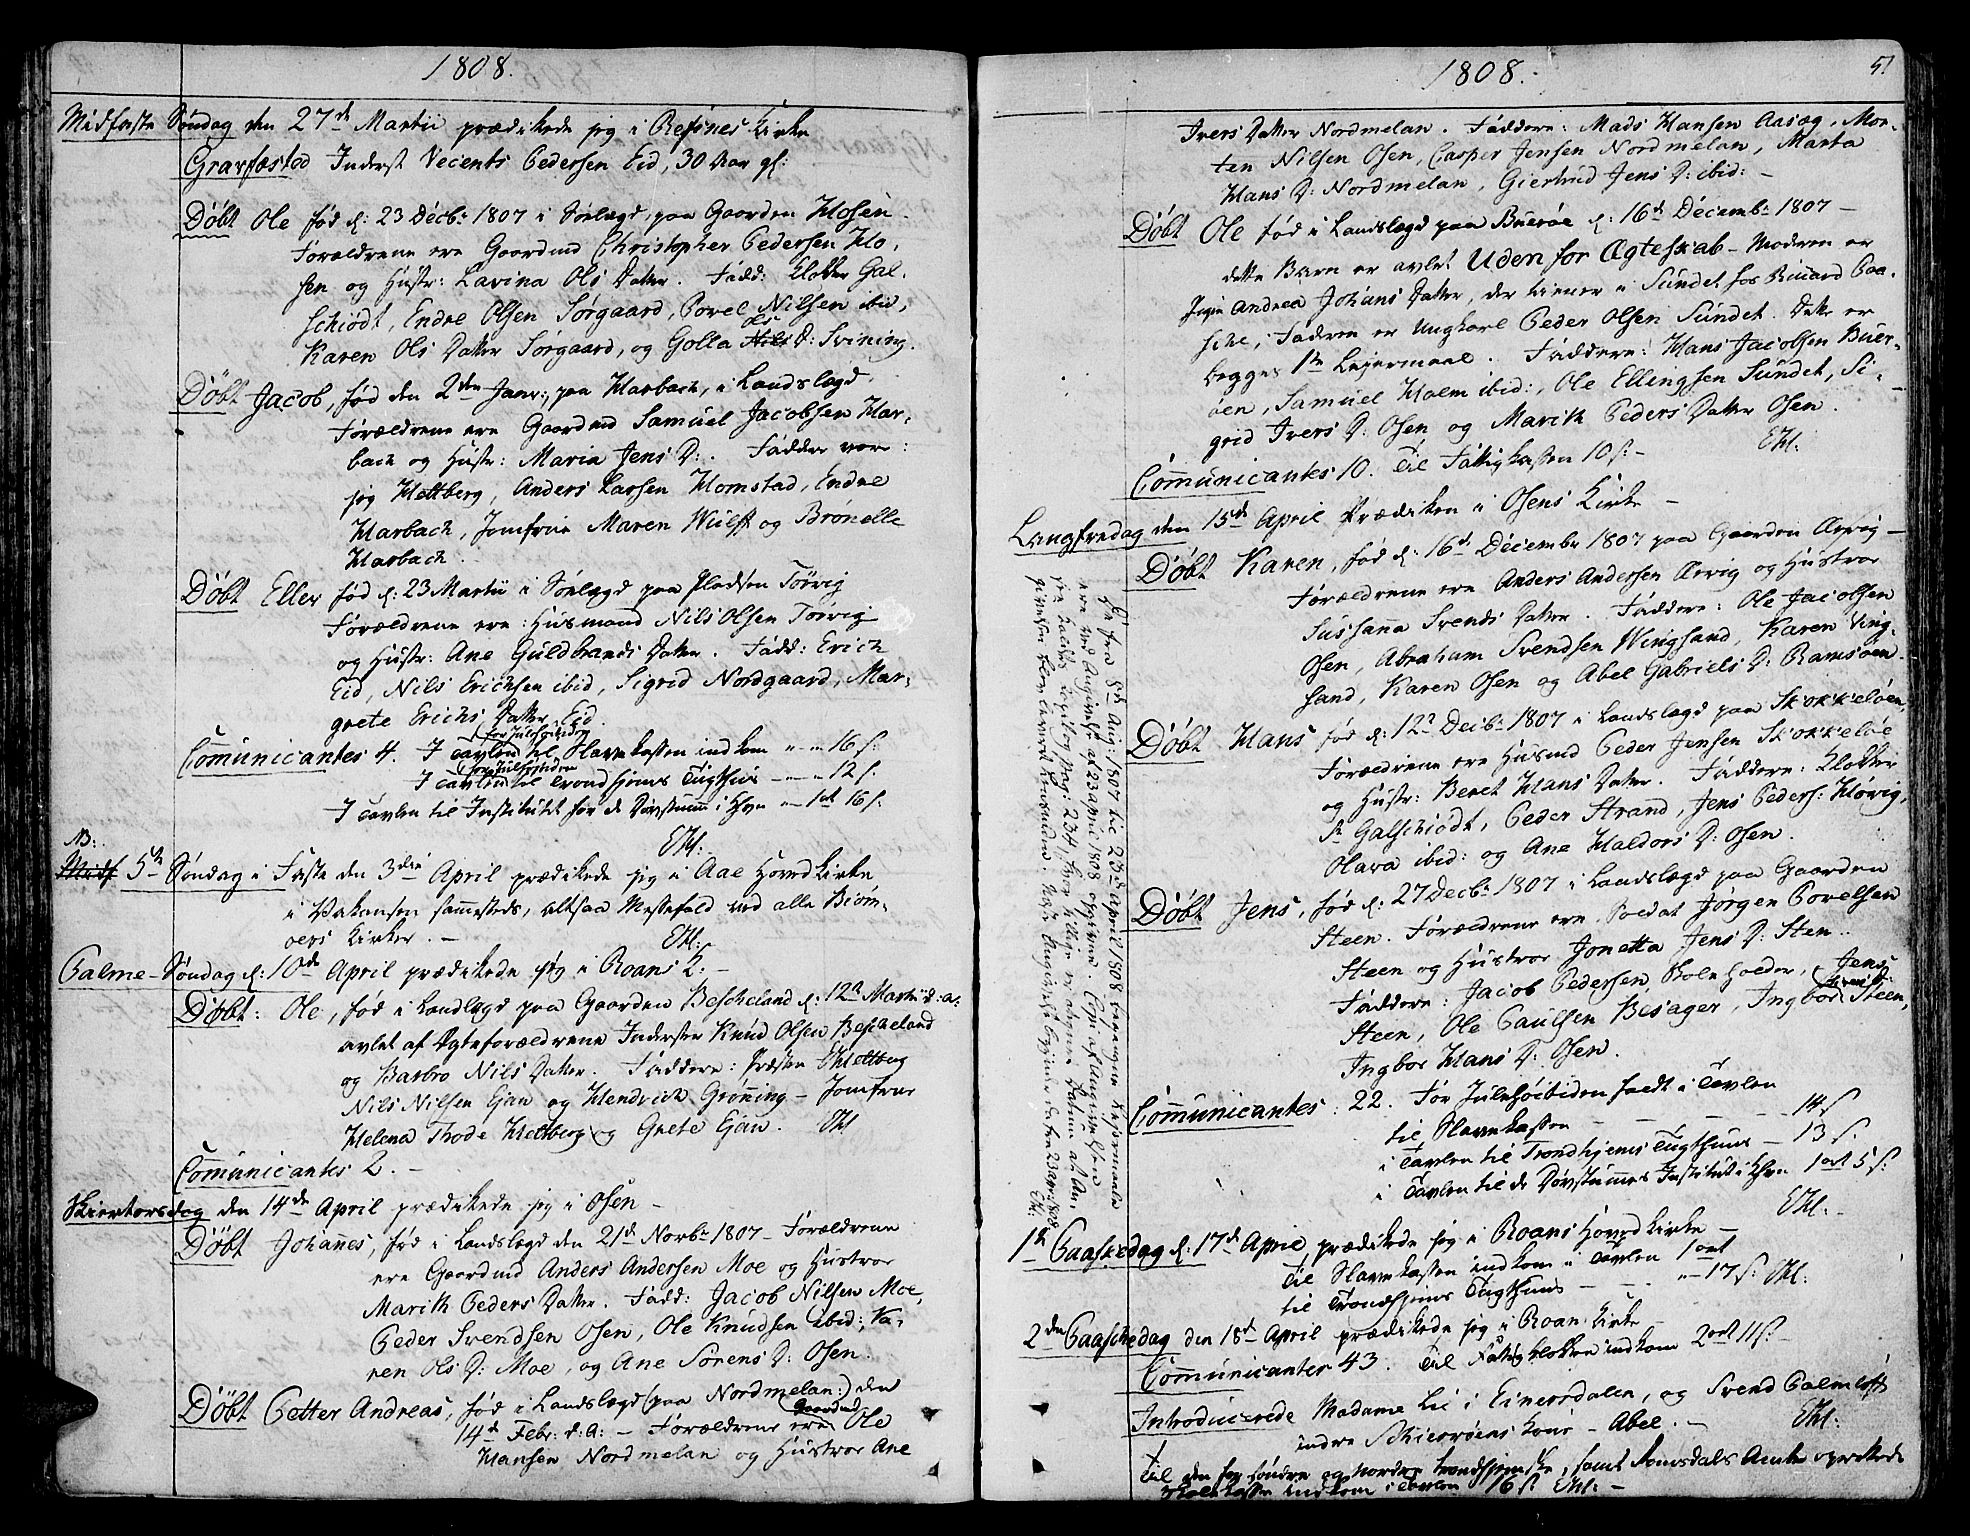 1808.
Midfaste Søndag den 27de Martii prædikede jeg i Refsnes Kirke
Gravfæsted Inderst Vecents Pedersen Eid, 30 Aar gl:
Døbt Ole fød d: 23 Decbr 1807 i Sørlægd, paa Gaarden Hosen
Forældrene ere Gaardmd Christopher Pedersen Ho,
sen og Hustr: Lavina Ols Datter. Fadd: Klokker Gal,
schiødt, Endre Olsen Sørgaard, Povel Nilsen ibid,
Karen Ols Datter Sørgaard, og Golla Nils Ols D: Svining.
Døbt Jacob, fød den 2den Janr: paa Harbach, i Landslægd
Forældrene ere Gaardmd Samuel Jacobsen Har,
bach og Hustr: Maria Jens D:. Faddere vare:
jeg Heltberg, Anders Larsen Homstad, Endre
Harbach, Jomfrue Maren Wulff og Brønelle
Harbach.
Døbt Eller fød d: 23 Martii i Sørlægd paa Pladsen Tørvig
Forældrene ere: Husmand Nils Olsen Tørvig
og Hustr: Ane Guldbrands Datter. Fadd: Erich
Eid, Nils Erichsen ibid, Sigrid Nordgaard, Mar,
grete Erichs Datter Eid.
Communicantes 4. I Tavlen (for Julehøitiden) til Slavekassen indkom " - " 16 s:
I Tavlen (for Julehøitiden) til Trondhjems Tugthus - - " 12 s:
I Tavlen til Institutet for de Døvstumme i Khvn - 1 ort 16 s:
Ehl:
NB:
Midf 5te Søndag i Faste den 3die April prædikede jeg i Aae Hovedkirke
i Vakansen sammesteds, altsaa Messefald ved alle Biørn-
øers Kirker. -
Ehl:
Palme-Søndag d: 10de April prædikede jeg i Roans K: -
Døbt: Ole, fød i Landlægd paa Gaarden Bescheland d: 12te Martii d: a:
avlet af Ægteforældrene Inderster Knud Olsen Bescheland
og Barbro Nils Datter. Faddere: Præsten EHeltberg
Nils Nilsen Gjæn og Hendrich Grønning - Jomfruer
Helena Thode Heltberg og Grete Gjæn. Ehl
Communicantes 2. -
Skiertorsdag den 14de April prædikede jeg i Osen -
Døbt Johannes, fød i Landslægd den 21de Novbr 1807 - Forældrene
ere Gaardmd Anders Andersen Moe og Hustroe
Marith Peders Datter. Fadd: Jacob Nilsen Moe,
Peder Svendsen Osen, Ole Knudsen ibid; Ka-
ren Ols D: Moe, og Ane Sørens D: Osen.
Døbt Petter Andreas, fød i Landslægd (paa Nordmelan:) den
14de Febr: d: A: - Forældrene ere Gaardmd Ole
Hansen Nordmelan og Hustroe Ane
1808.
51
Ivers Datter Nordmelan. Faddere: Mads Hansen Aasæg, Mor-
ten Nilsen Osen, Casper Jensen Nordmelan, Marta
Hans D: Nordmelan, Giertrud Jens D: ibid: -
Døbt Ole fød i Landslægd paa Buerøe d: 16de Decembr: 1807 -
dette Barn er avlet Uden for Ægteskab - Moderen er
Pigen Andrea Johans Datter, der tiener i Sundet hos Richard Paa-
sche, Faderen er Ungkarl Peder Olsen Sundet. Dette er
begges 1te Leiermaal. Faddere: Hans Jacobsen Buer-
øen, Samuel Holm ibid:, Ole Ellingsen Sundet, Si-
grid Ivers D: Osen og Marith Peders Datter Osen.
Communicantes 10. Til Fattigkassen 10 s: - Ehl:
Langfredag den 15de April Prædiken i Osens Kirke -
Døbt Karen, fød d: 16de Decembr 1807 paa Gaarden Ærvig -
Forældrene ere Anders Andersen Ærvig og Hustroe
Sussanna Svends Datter. Faddere: Ole Jacobsen
Osen, Abraham Svendsen Wingsand, Karen Ving-
sand, Karen Osen og Abel Gabriels D: Ramsøen.
Døbt Hans fød d: 12te Decbr 1807 i Landslægd paa Skokkeløen,
Forældrene ere Husmd Peder Jensen Skokkeløe
og Hustr: Beret Hans Datter. Faddere: Klokker
Sr Galschiødt, Peder Strand, Jens Peders: Høvig,
Olava ibid: og Ane Haldors D: Osen.
Døbt Jens, fød d: 27 Decbr 1807 i Landslægd paa Gaarden
Steen. Forældrene ere Soldat Jørgen Povelsen
Steen og Hustroe Jonetta Jens D: Steen.
Faddere: Jacob Pedersen, Skoleholder, Jens
Steen, Ole Paulsen Besager, Ingbor Steen,
Ingbor Hans D: Osen.
Communicantes: 22. For Julehøitiden faaet i Tavlen
til Slavekassen - - - - - 14 s
i Tavlen til Trondhjems Tugthuus - 13 s.
i Tavlen til de Døvstummes Institut i Khvn 1 ort 5 s:
Ehl: -
De fra 8de Aug. 1807 til 23de April 1808
ere ved Angivelse af 23 April 1808
pag: 234,
Ehl:
1te Paaskedag d: 17de April, prædikede jeg i Roans Hovedkirke -
Til Slavekassen indkom i Tavlen 1 ort
til Trondhjems Tugthuus - - " - 17 s: Ehl:
2den Paaschedag den 18de April prædikede jeg i Roans Kirke -
Communicanter 43. Til Fattigblokken indkom 2 ort 11 s: -
Introducerede Madame Lie i Einersdalen, og Svend
Kone - Abel. - Ehl:
Til den for søndre og nordre Trondhjemske, samt Romsdals Amter oprettede
Skolekasse indkom i Tavlen 16 s Ehl: -